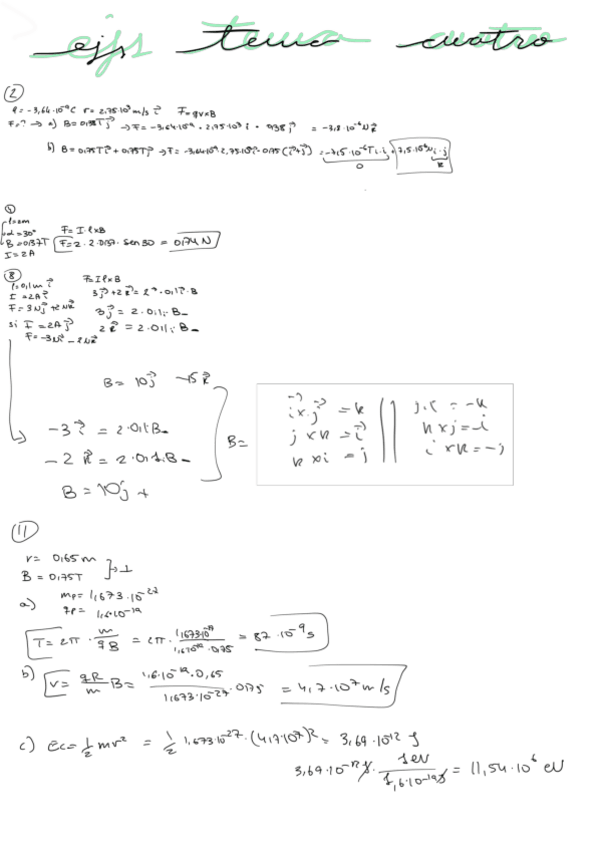 ejs tema cuatro
②
q = -3,64·10⁻⁹C v = 2,75·10³ m/s i⃗ F = qv×B
F? → a) B = 0,38T j⃗ → F = -3,64·10⁻⁹ · 2,75·10³ i · 0,38 j⃗ = -3,8·10⁻⁶ N k⃗
b) B = 0,75T i⃗ + 0,75T j⃗ → F = -3,64·10⁻⁹ · 2,75·10³ i · 0,75 (i⃗+j⃗) = -7,5·10⁻⁶ T i·i + 7,5·10⁻⁶ N i·j
0 k
④
l = 2m
α = 30° F = I·l×B
B = 0,37T F = 2·2·0,37·sen30 = 0,74 N
I = 2A
⑧
l = 0,1m i⃗ F = I l×B
I = 2A i⃗ 3j⃗ + 2k⃗ = 2·0,1 i⃗·B
F = 3N j⃗ + 2N k⃗ 3j⃗ = 2·0,1i·B_
si I = 2A j⃗ 2k⃗ = 2·0,1i·B_
F = -3N i⃗ - 2N k⃗
B = 10j⃗ -15k⃗
-3 i⃗ = 2·0,1·B_
-2 k⃗ = 2·0,1·B_
B = 10j +
B =
i⃗×j⃗ = k j·i = -k
j×k = i⃗ k×j = -i
k×i = j i×k = -j
⑪
r = 0,65m
B = 0,75T } → ⊥
a) mp = 1,673·10⁻²⁷
qp = 1,6·10⁻¹⁹
T = 2π · m/qB = 2π · 1,673·10⁻²⁷/1,6·10⁻¹⁹·0,75 = 87·10⁻⁹ s
b) v = qR/m B = 1,6·10⁻¹⁹·0,65/1,673·10⁻²⁷ · 0,75 = 4,7·10⁷ m/s
c) Ec = 1/2 mv² = 1/2 1,673·10⁻²⁷·(4,7·10⁷)² = 3,69·10⁻¹² J
3,69·10⁻¹² J · 1eV/1,6·10⁻¹⁹J = 11,54·10⁶ eV